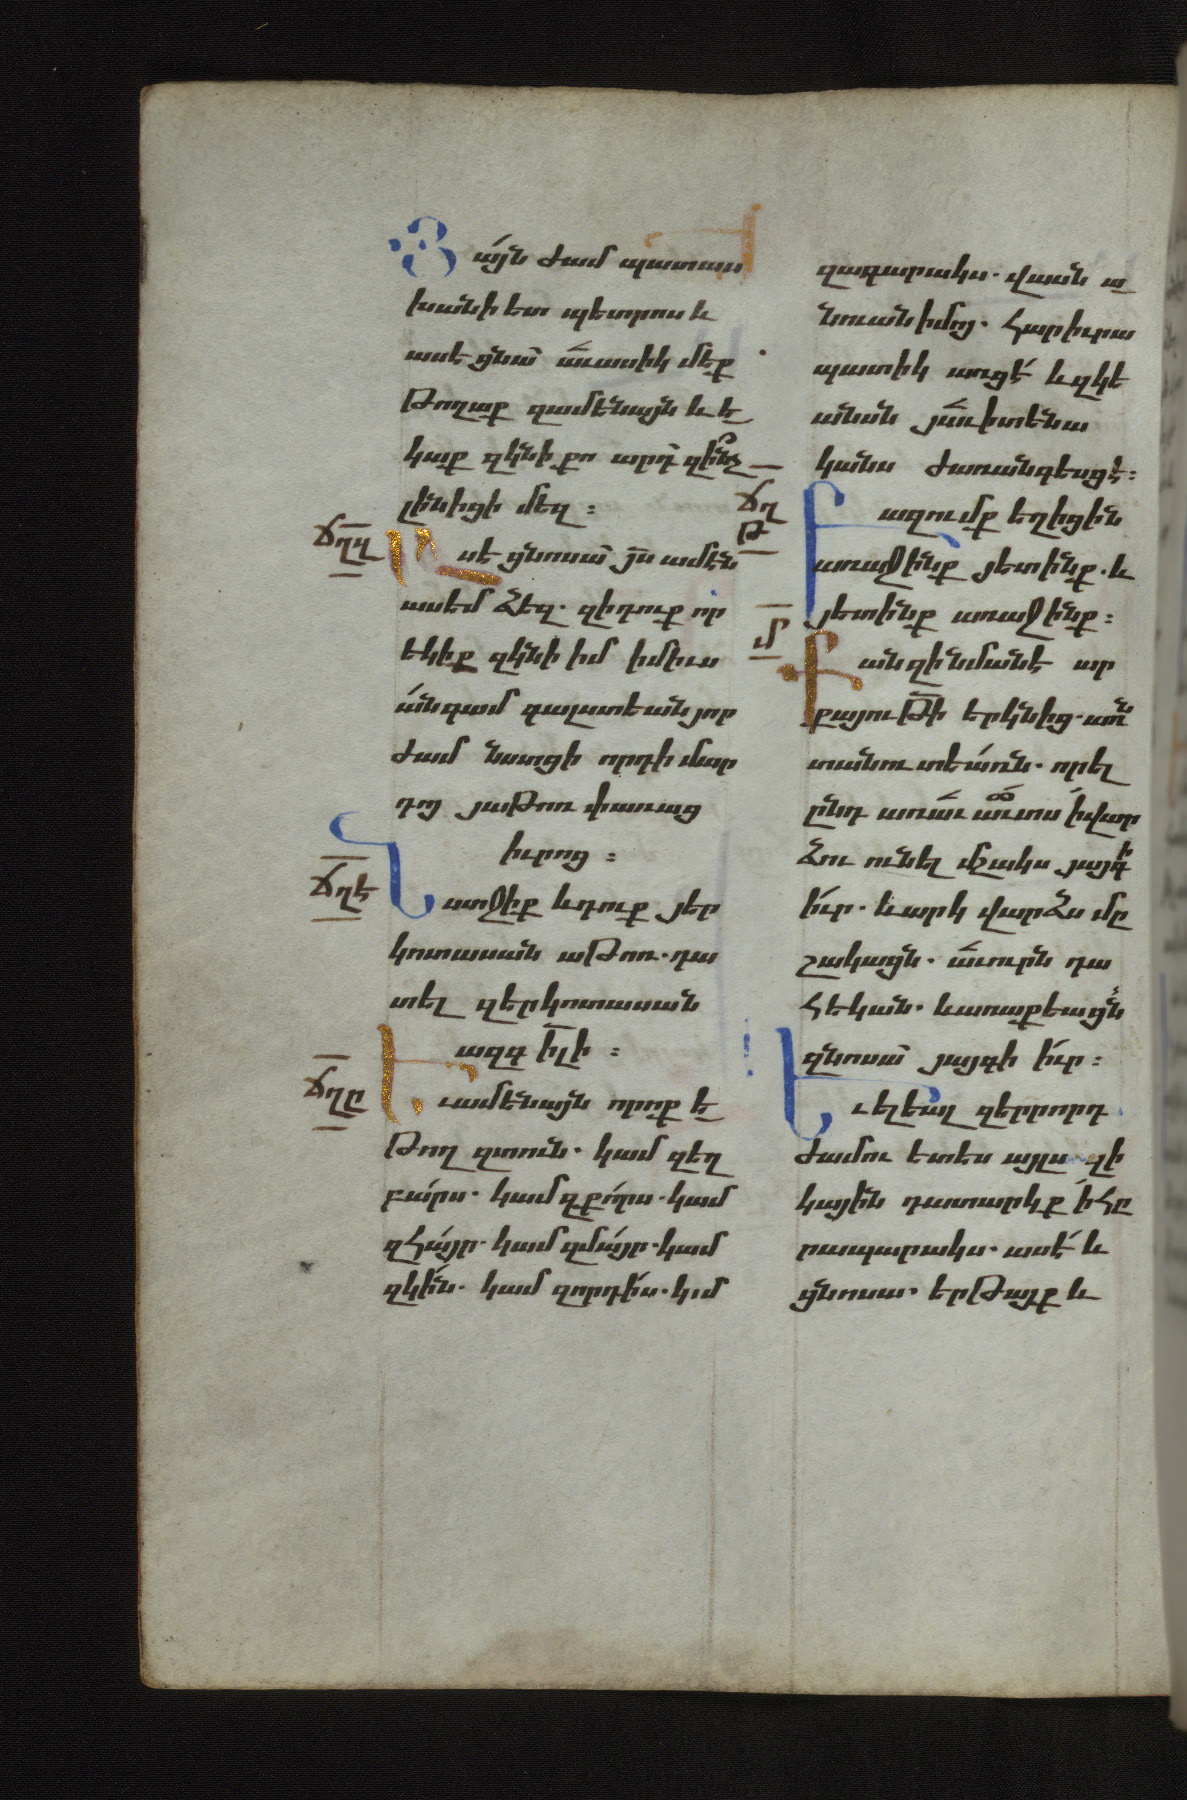 Յայն ժամ պատաս
խանի ետ պետրոս և
ասէ ցնա՝ աւասիկ մեք
թողաք զամենայն և ե
կաք զկնի քո արդ զի՞նչ
լինիցի մեզ ։
ճղզ
Ասէ ցնոսա յս ամէն
ասեմ ձեզ. զի դուք որ
եկիք զկնի իմ ի միւս
անգամ գալստեան յոր
ժամ նստցի որդի մար
դոյ յաթոռ փառաց
իւրոց ։
ճղէ
Նստջիք և դուք յեր
կոտասան աթոռ. դա
տել զերկոտասան
ազգ իլի ։
ճղը
Եւ ամենայն որոք ե
թող զտուն. կամ զեղ
բարս. կամ զքորս. կամ
զհայր. կամ զմայր. կամ
զկին. կամ զորդիս. կմ
զագարակս. վասն ա
նուան իմոյ. հարիւրա
պատիկ առցէ և զկե
անսն յաւիտենա
կանս ժառանգեսցէ։
ճղ
թ
Բազումք եղիցին
առաջինք յետինք. և
յետինք առաջինք։
մ
Քանզի նման է ար
քայութի երկնից. առն
տանուտեառն. որ ել
ընդ առաւ աւտս ի վար
ձու ունել մշակս յայգի
իւր. և արկ վարձս մը
շակացն. աւուրն դա
հեկան. և առաքեաց
զնոսա յայգի իւր։
Եւ ելեալ զերրորդ
ժամու ետես այլս զի
կային դատարկք ի հը
րապարակս. ասէ և
ցնոսա. երթայք և